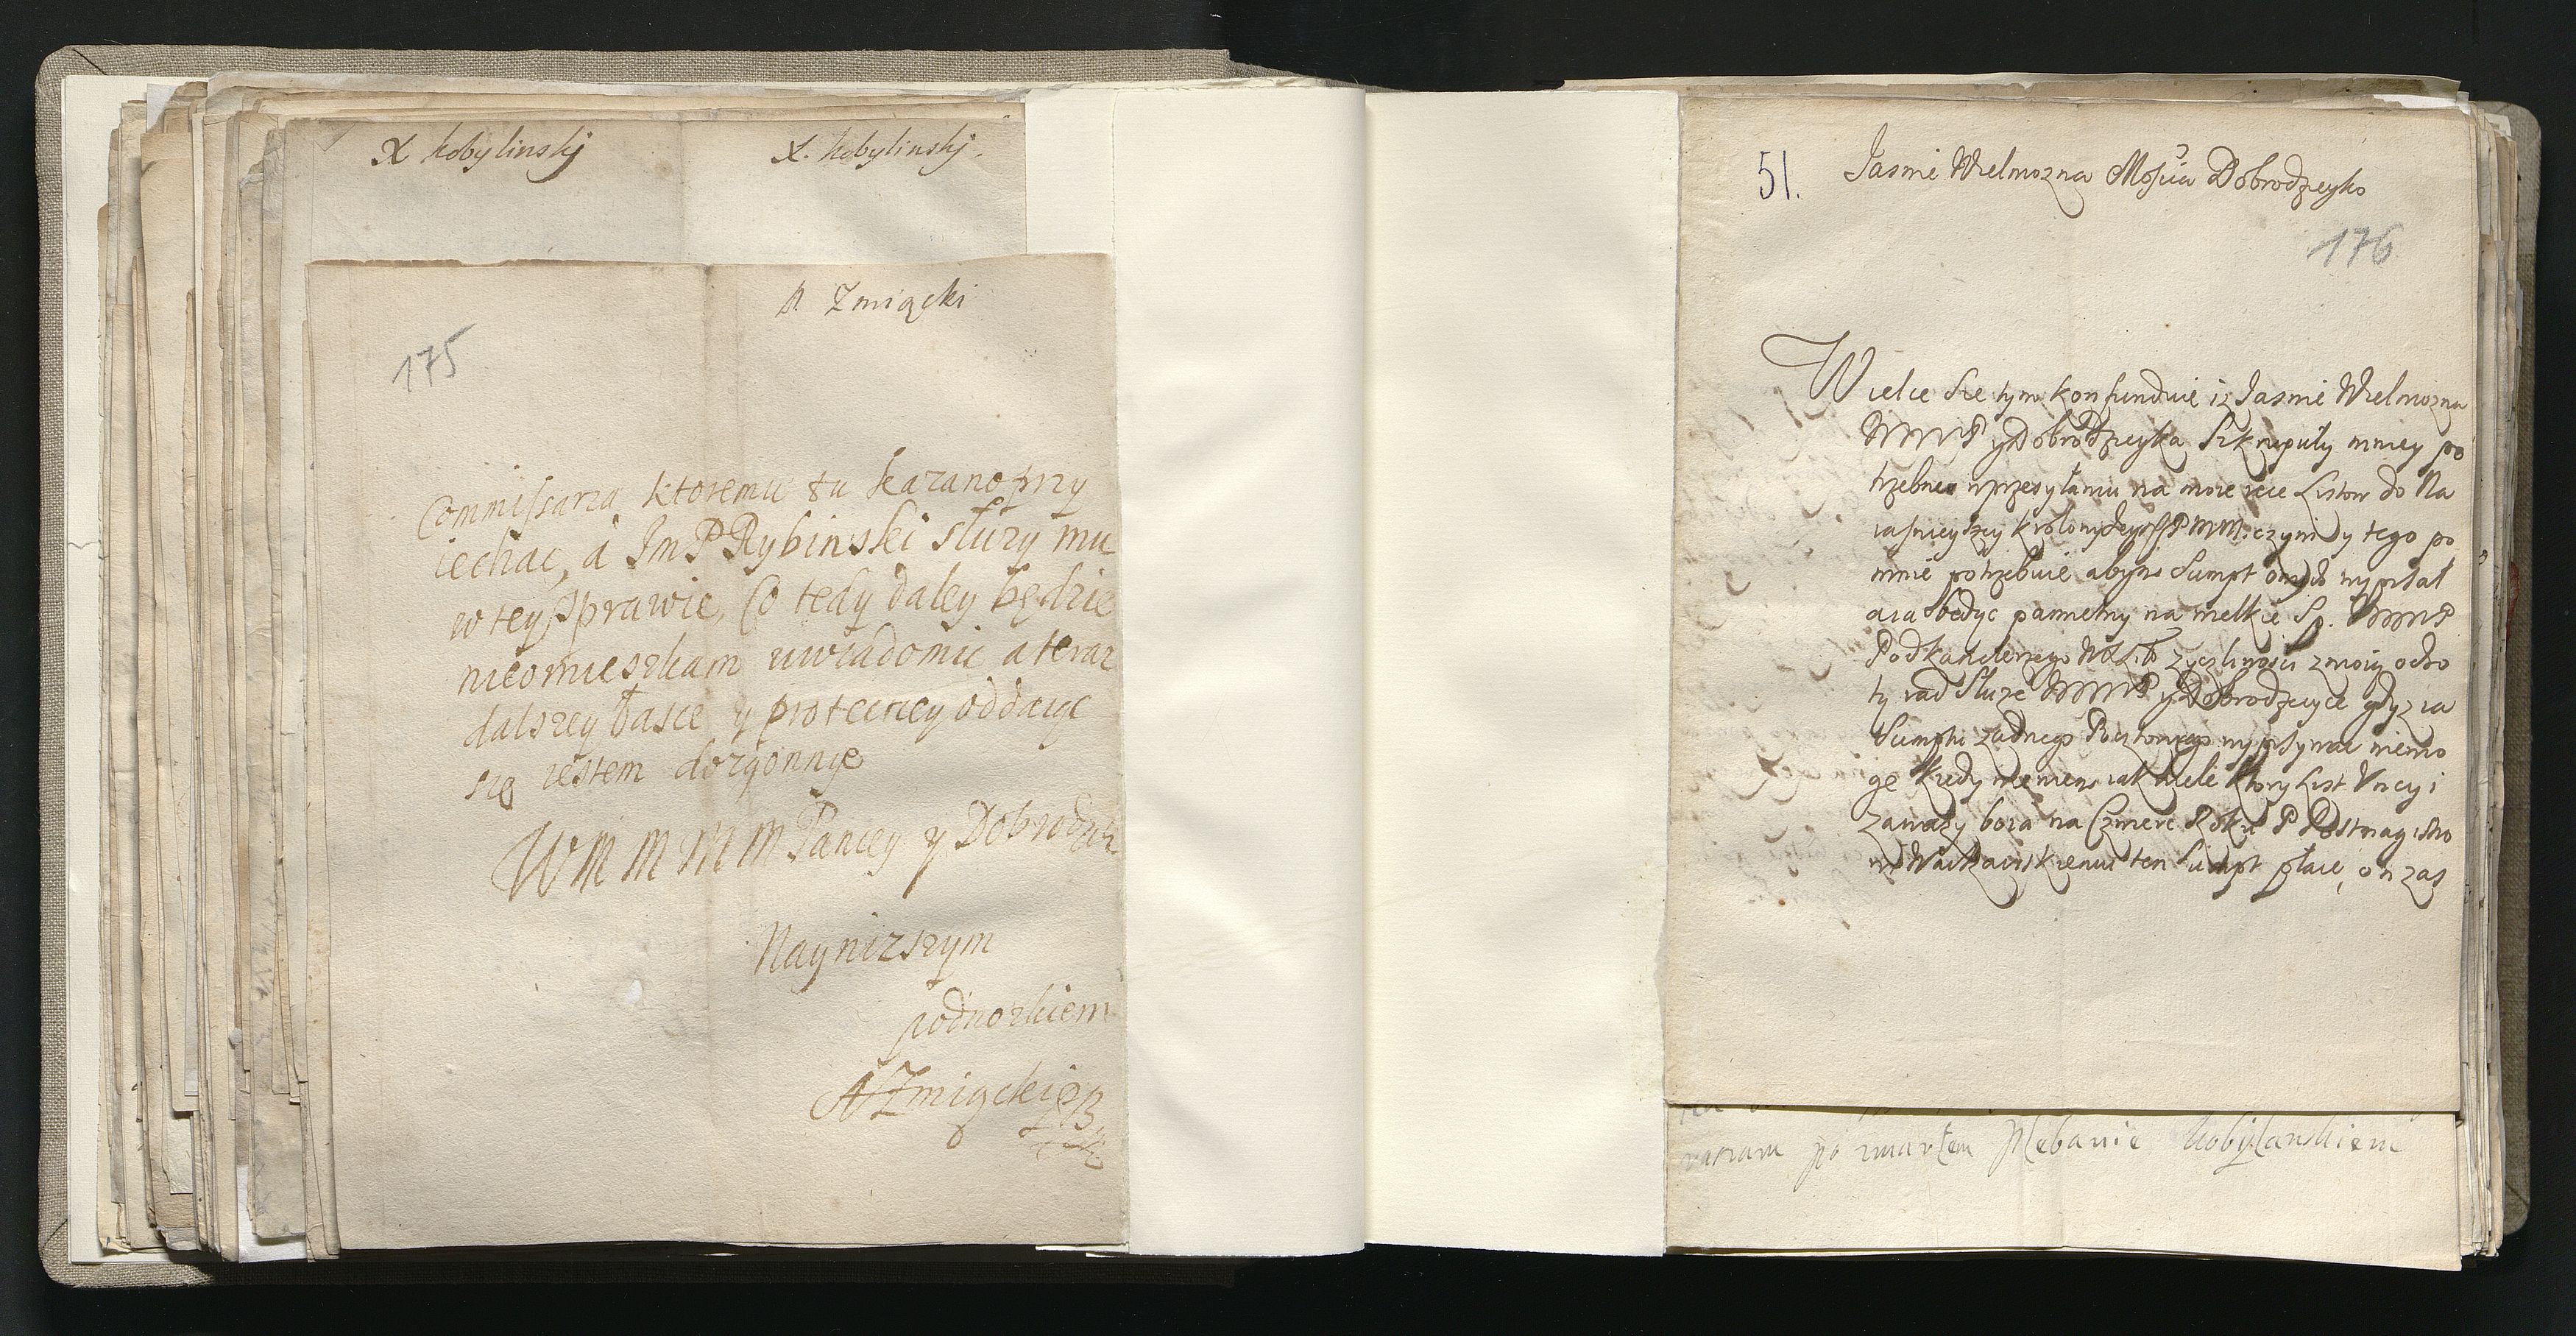 X Kobylinskj
X. Kobylinskj.
A Zmiącki
175
Commissarza ktoremu tu kazano przy
iechac, a Im P Rybinski służy mu
w tey sprawie, Co tedy daley będzie
nieomieszkam uwiadomic a teraz
dalszey łasce y protectiey oddaiąc
się iestem dozgonnye
W M M M M Paniey y Dobrodzik
Naynizszym
podnozkiem
A Zmiącki
51.
Jasnie Wielmozna Mościa Dobrodzieyko
176
Wielce sie tym konfunduie iz Jasnie Wielmozna
WMMP y Dobrodzieyka Szkrupuły mniey po
trzebne w przesyłaniu na moie ręce Listow do Na
iasnieyszey krolowy Jeymsci P M M. czyni y tego po
mnie potrzebuie abym Sumpt wypisał
a ia będąc pamietny na wielkie S.p. WMMP
Podkanclerzego zyczliwosci z moiey ocho
ty rad służe WMMP y Dobrodzieyce gdyz ia
Sumptu zadnego Pocztowego wypisywac niemo
gę kiedy niewiem iak wiele ktory List wazy i
zawazy bo ia na Czwierc Roku P Postmagistro
wi Warszawskiemu ten Sumpt płacę, on zas
po zmarłem Plebanie Kobylanskiem